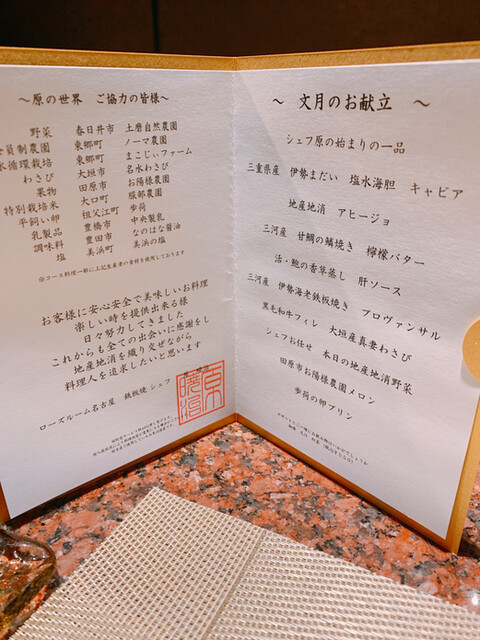 ～原の世界　ご協力の皆様～
野菜　春日井市　土磨自然農園
会員制農園　東郷町　ノーマ農園
水循環栽培　東郷町　まこじぃファーム
わさび　大垣市　名水わさび
果物　田原市　お陽様農園
特別栽培米　大口町　服部農園
平飼い卵　祖父江町　歩荷
乳製品　豊橋市　中央製乳
調味料　豊田市　なのはな醤油
塩　美浜町　美浜の塩
※コース料理一部に上記生産者の食材を使用しております
お客様に安心安全で美味しいお料理
楽しい時を提供出来る様
日々努力してきました
これからも全ての出会いに感謝をし
地産地消を織り交ぜながら
料理人を追求したいと思います
ローズルーム名古屋　鉄板焼 シェフ
～　文月のお献立　～
シェフ原の始まりの一品
三重県産　伊勢まだい　塩水海胆　キャビア
地産地消　アヒージョ
三河産　甘鯛の鱗焼き　檸檬バター
活・鮑の香草蒸し　肝ソース
三河産　伊勢海老鉄板焼き　プロヴァンサル
黒毛和牛フィレ　大垣産真妻わさび
シェフお任せ　本日の地産地消野菜
田原市お陽様農園メロン
歩荷の卵プリン